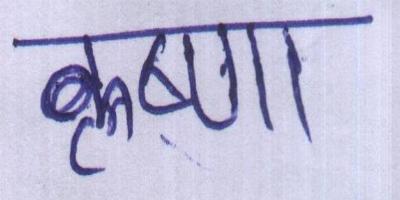 कृष्णा